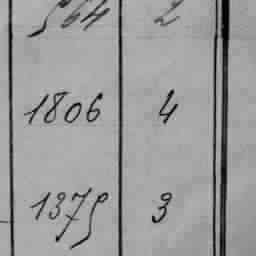 564 2
1806 4
1375 3